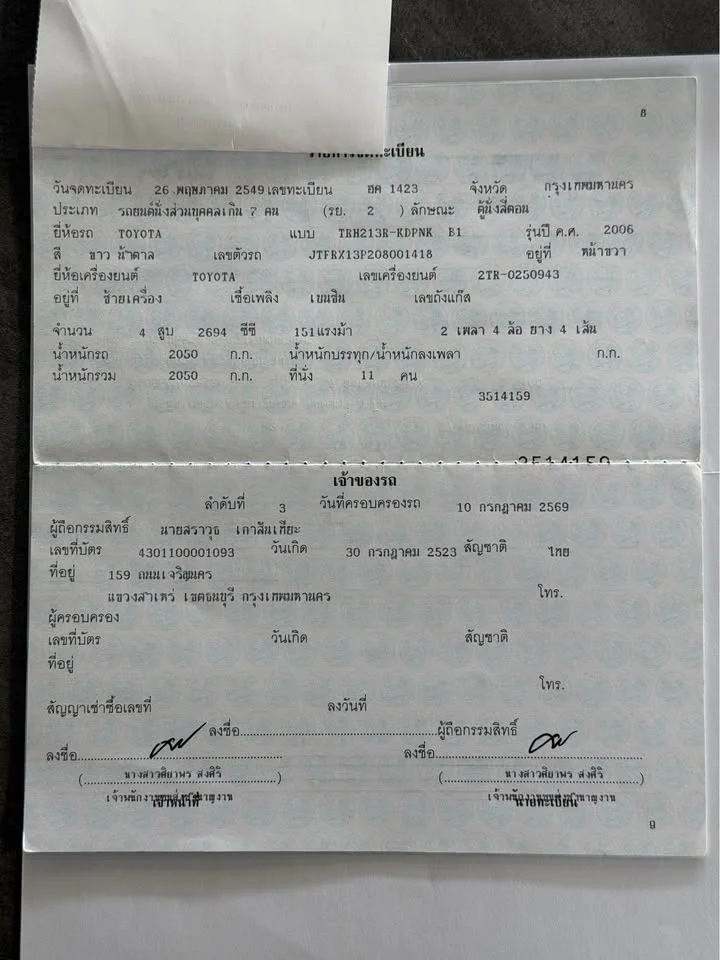 8
รายการจดทะเบียน
วันจดทะเบียน 26 พฤษภาคม 2549 เลขทะเบียน ฮค 1423 จังหวัด กรุงเทพมหานคร
ประเภท รถยนต์นั่งส่วนบุคคลเกิน 7 คน (รย. 2 ) ลักษณะ ตู้นั่งสี่ตอน
ยี่ห้อรถ TOYOTA แบบ TRH213R-KDPNK B1 รุ่นปี ค.ศ. 2006
สี ขาว น้ำตาล เลขตัวรถ JTFRX13P208001418 อยู่ที่ หน้าขวา
ยี่ห้อเครื่องยนต์ TOYOTA เลขเครื่องยนต์ 2TR-0250943
อยู่ที่ ซ้ายเครื่อง เชื้อเพลิง เบนซิน เลขถังแก๊ส
จำนวน 4 สูบ 2694 ซีซี 151 แรงม้า 2 เพลา 4 ล้อ ยาง 4 เส้น
น้ำหนักรถ 2050 ก.ก. น้ำหนักบรรทุก/น้ำหนักลงเพลา ก.ก.
น้ำหนักรวม 2050 ก.ก. ที่นั่ง 11 คน
3514159
3514159
เจ้าของรถ
ลำดับที่ 3 วันที่ครอบครองรถ 10 กรกฎาคม 2569
ผู้ถือกรรมสิทธิ์ นายสราวุธ เกาสันเทียะ
เลขที่บัตร 4301100001093 วันเกิด 30 กรกฎาคม 2523 สัญชาติ ไทย
ที่อยู่ 159 ถนนเจริญนคร
แขวงสำเหร่ เขตธนบุรี กรุงเทพมหานคร โทร.
ผู้ครอบครอง
เลขที่บัตร วันเกิด สัญชาติ
ที่อยู่
โทร.
สัญญาเช่าซื้อเลขที่ ลงวันที่
ลงชื่อ ผู้ถือกรรมสิทธิ์
ลงชื่อ ลงชื่อ
(นางสาวศิยาพร สงศิริ) (นางสาวศิยาพร สงศิริ)
เจ้าพนักงานขนส่งชำนาญงาน เจ้าพนักงานขนส่งชำนาญงาน
เจ้าหน้าที่ นายทะเบียน
9